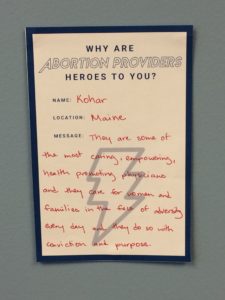 WHY ARE
ABORTION PROVIDERS
HEROES TO YOU?
NAME: Kohar
LOCATION: Maine
MESSAGE: They are some of
the most caring, empowering,
health promoting physicians
and they care for women and
families in the face of adversity
every day and they do so with
conviction and purpose.